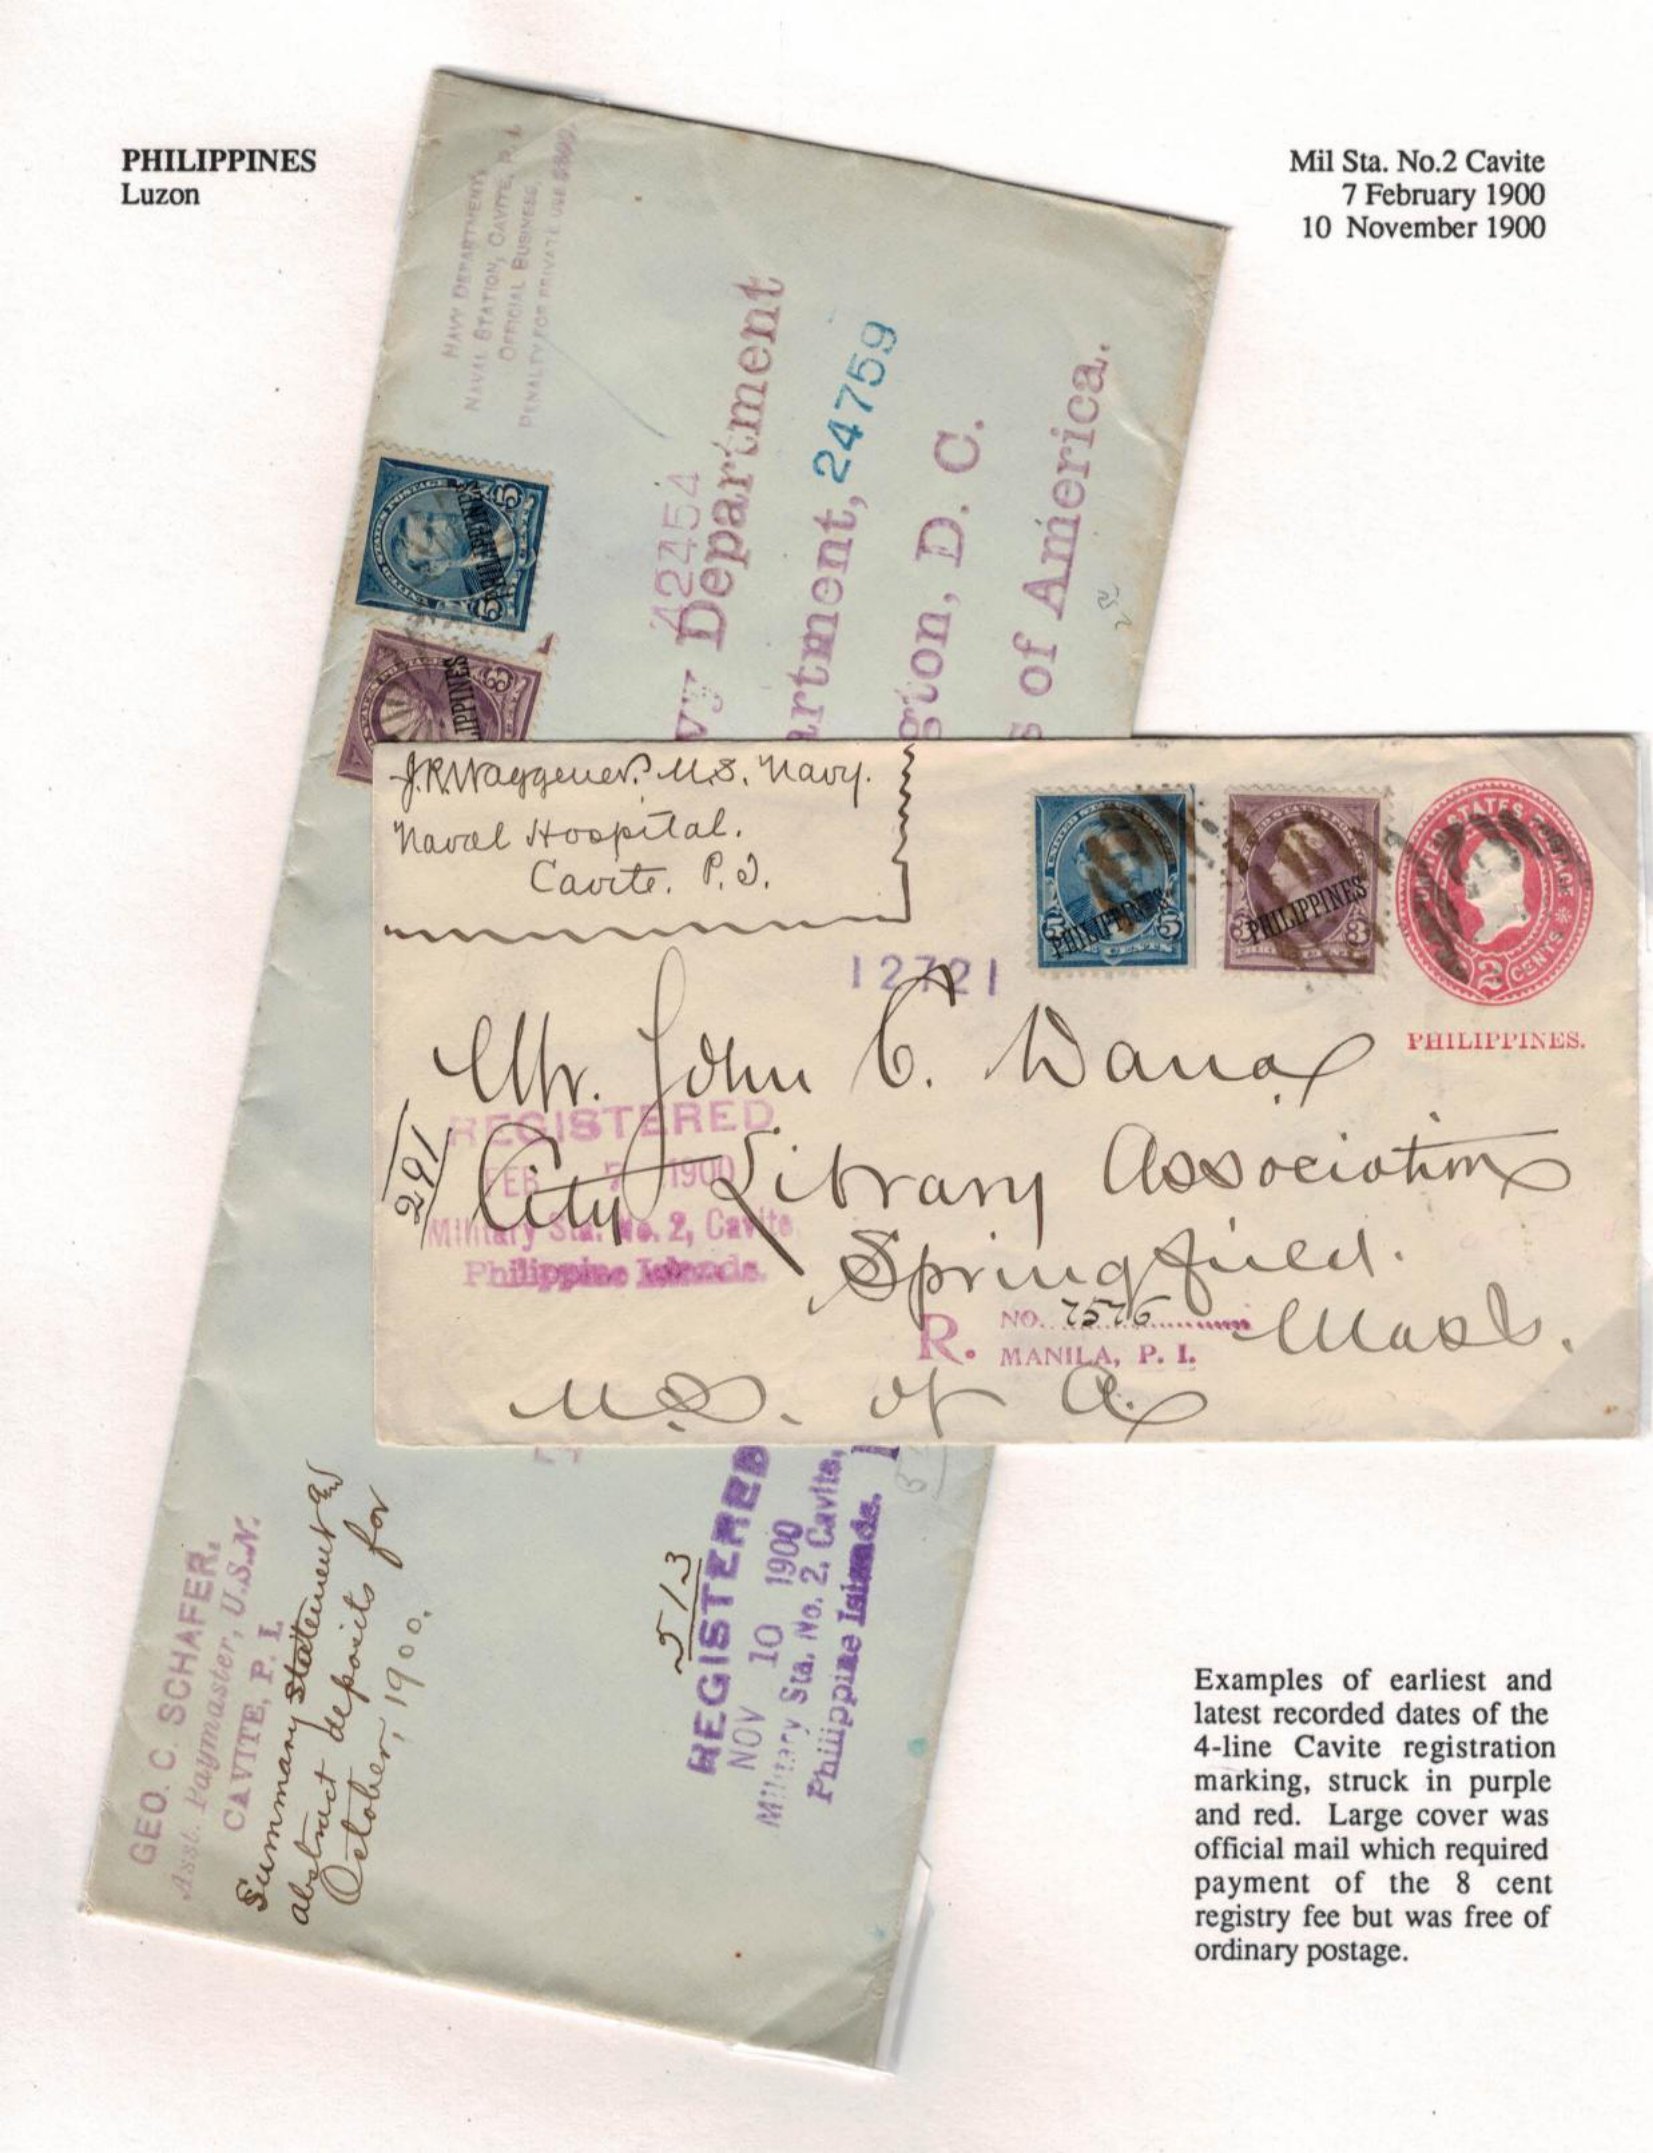 PHILIPPINES
Luzon
Mil Sta. No.2 Cavite
7 February 1900
10 November 1900
NAVY DEPARTMENT,
NAVAL STATION, CAVITE, P. I.
OFFICIAL BUSINESS.
PENALTY FOR PRIVATE USE $300.
UNITED STATES POSTAGE
5 5
PHILIPPINES
3
LIPPINES
42454
vy Department
artment, 24759
gton, D. C.
s of America.
J.R. Waggener. U.S. Navy.
Naval Hospital.
Cavite. P.I.
5 5
PHILIPPINES
3 3
PHILIPPINES
UNITED STATES POSTAGE
2 CENTS
PHILIPPINES.
12721
Mr. John C. Dana
City Library Association
Springfield.
Mass.
U.S. of A.
291
REGISTERED
FEB 7 1900
Military Sta. No. 2, Cavite,
Philippine Islands.
R. NO. 7576
MANILA, P. I.
GEO. C. SCHAFER,
Asst. Paymaster, U.S.N.
CAVITE, P. I.
Summary statement &
abstract deposits for
October, 1900.
513
REGISTERED
NOV 10 1900
Military Sta. No. 2, Cavite,
Philippine Islands.
Examples of earliest and
latest recorded dates of the
4-line Cavite registration
marking, struck in purple
and red. Large cover was
official mail which required
payment of the 8 cent
registry fee but was free of
ordinary postage.